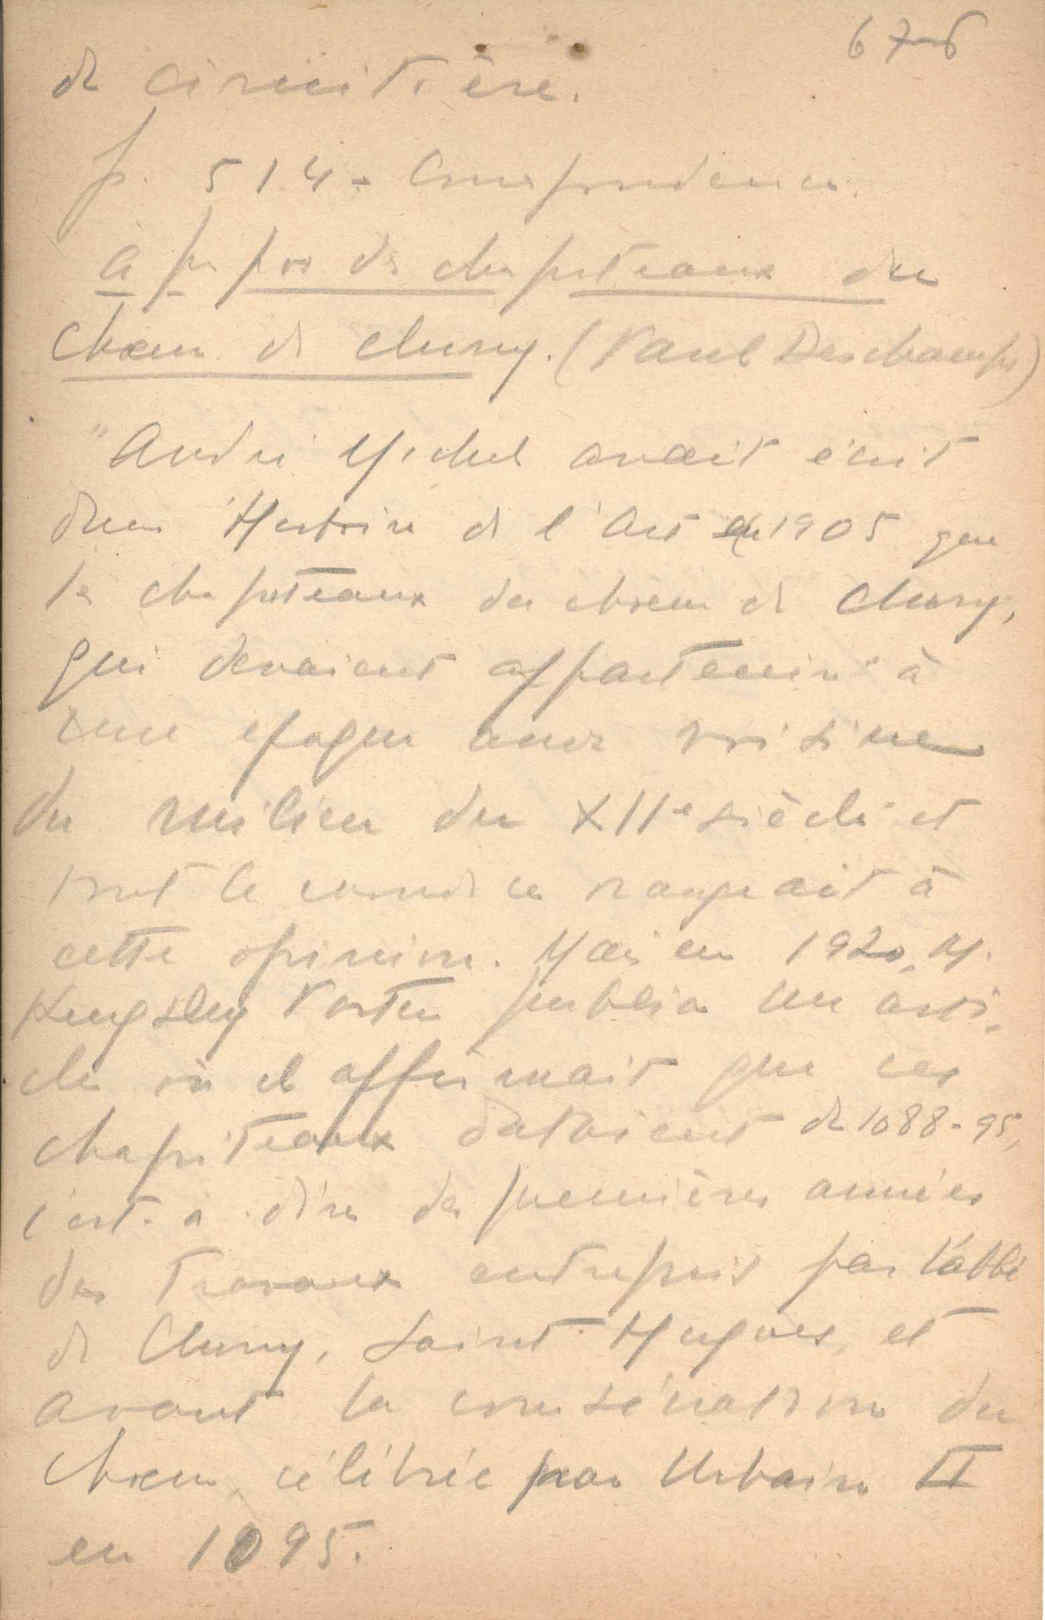 67-6
de cimetière.
p. 514 - Correspondance.
à propos des chapiteaux du
chœur de Cluny. (Paul Deschamps)
"André Michel avait écrit
dans l'Histoire de l'Art en 1905 que
les chapiteaux du chœur de Cluny,
qui devaient appartenir "à
une époque assez voisine
du milieu du XIIe siècle" et
tout le monde se rangeait à
cette opinion. Mais en 1920, M.
Kingsley Porter publia un arti-
cle où il affirmait que ces
chapiteaux dataient de 1088-95,
c'est-à-dire des premières années
des travaux entrepris par l'abbé
de Cluny, Saint Hugues, et
avant la consécration du
chœur, célébrée par Urbain II
en 1095.